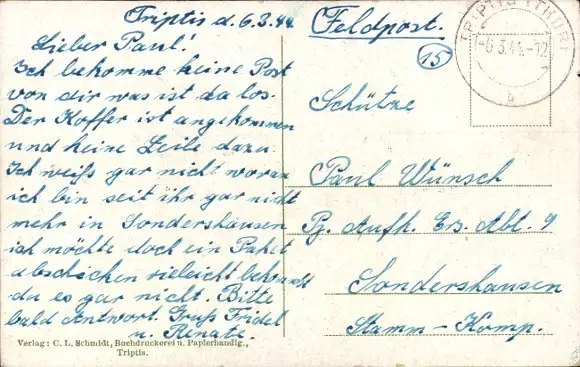 Triptis d. 6.3.44
Lieber Paul!
Ich bekomme keine Post
von dir was ist da los.
Der Koffer ist angekommen
und keine Zeile dazu.
Ich weiß gar nicht woran
ich bin seit ihr gar nicht
mehr in Sondershausen
ich möchte doch ein Paket
abschicken vieleicht bekomst
du es gar nicht. Bitte
bald Antwort. Gruß Fridel
u. Renate.
Verlag: C. L. Schmidt, Buchdruckerei u. Papierhandlg.,
Triptis.
Feldpost.
15
TRIPTIS (THÜR)
-6.3.44.-12
b
Schütze
Paul Wünsch
Pz. Aufk. Ers. Abt. 9
Sondershausen
Stamm-Komp.